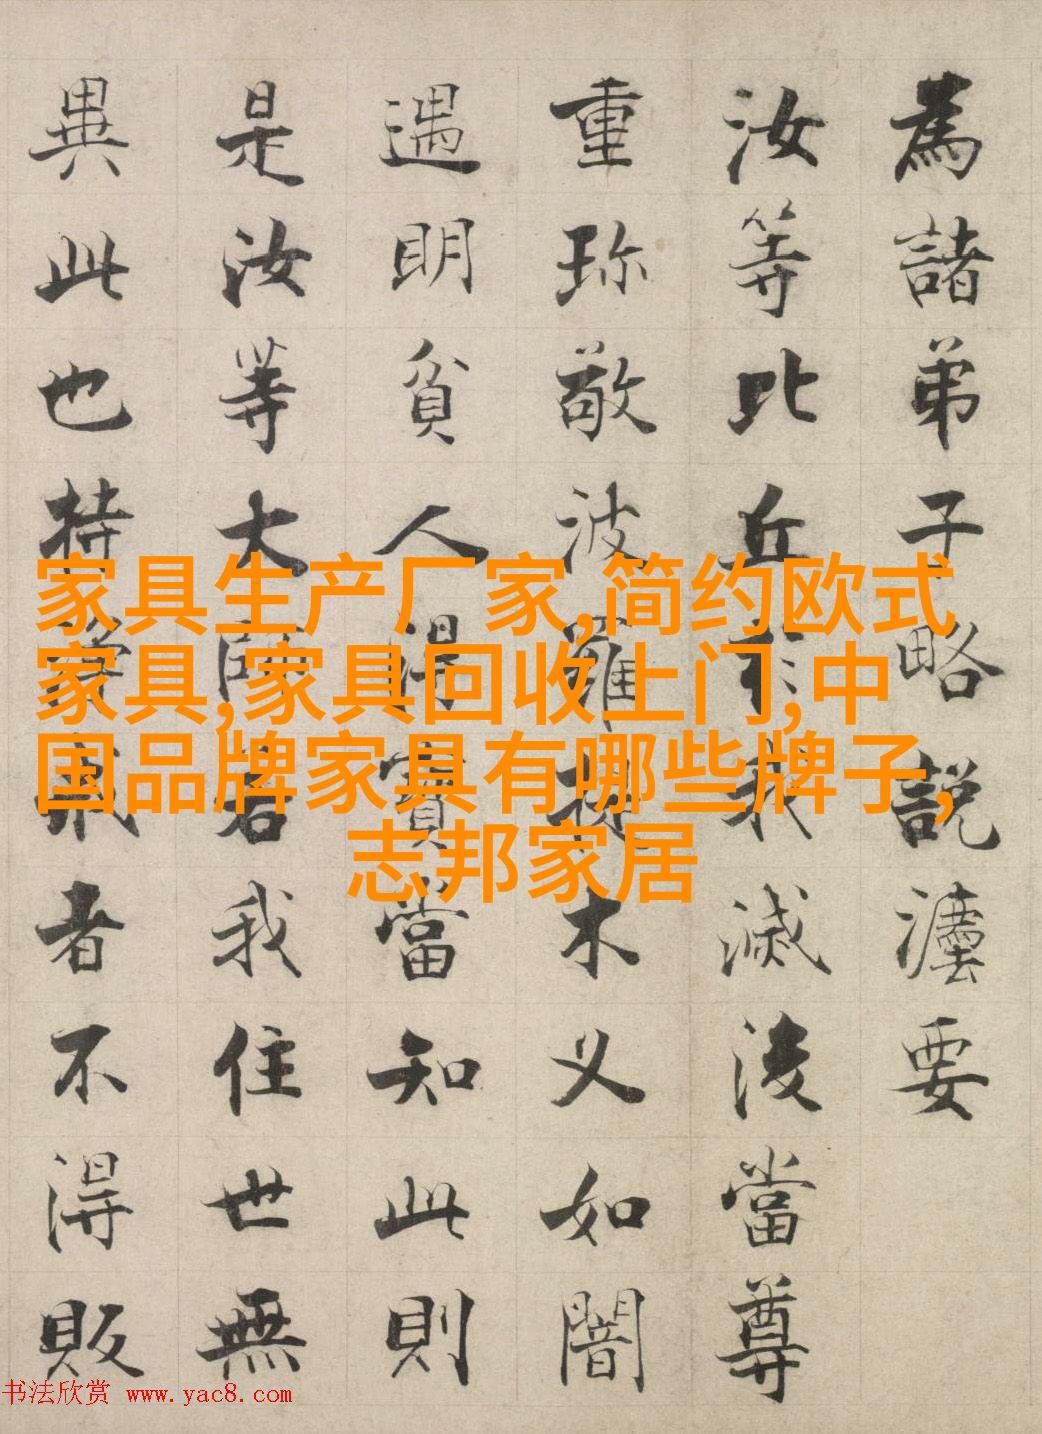 為諸弟子略說灋要
汝等比丘於我滅後當尊
重珎敬波羅提木叉如闇
遇明貧人得寶當知此則
是汝等大師若我住世無
異此也持淨戒者不得販
家具生产厂家,简约欧式
家具,家具回收上门,中
国品牌家具有哪些牌子,
志邦家居
书法欣赏 www.yac8.com